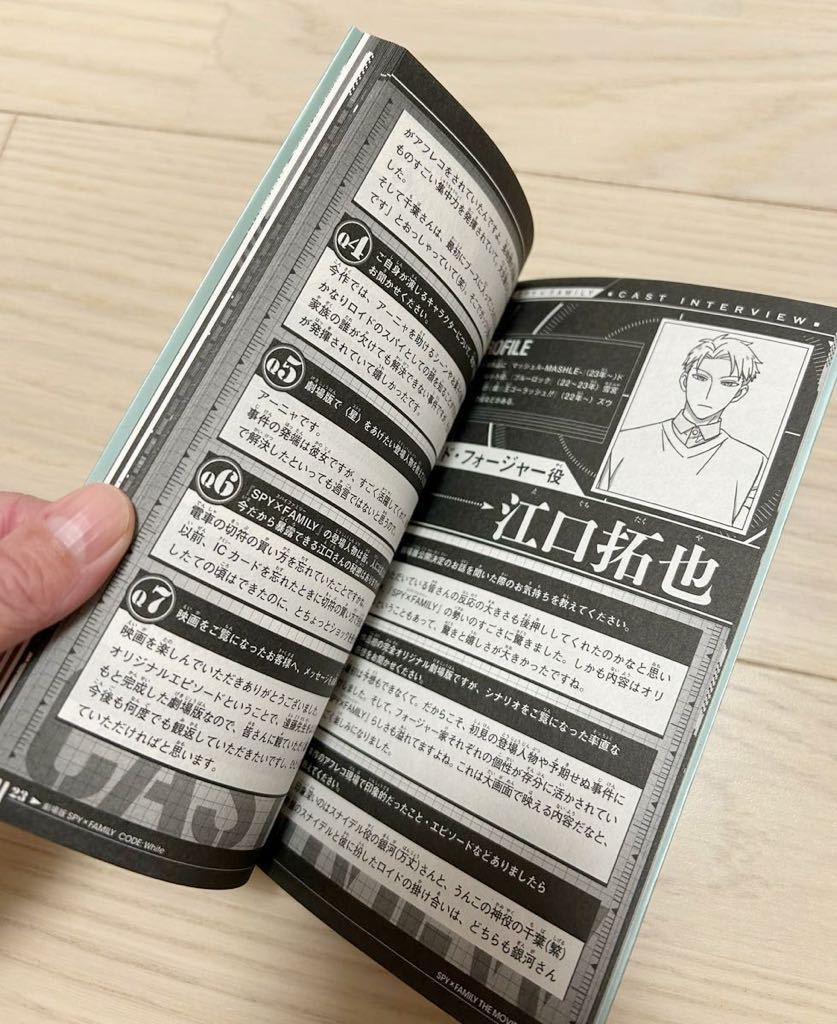 SPY×FAMILY ■CAST INTERVIEW■
マッシュル-MASHLE-(23年~)ド
ブルーロック(22~23年)雪宮
王ゴーラッシュ!!(22年~)ズウ
ド・フォージャー役
江口拓也
えぐちたくや
開決定のお話を聞いた際のお気持ちを教えてください。
だいている皆さんの反応の大きさも後押ししてくれたのかなと思い
SPY×FAMILY』の勢いのすごさに驚きました。しかも内容はオリ
いうこともあって、驚きと嬉しさが大きかったですね。
の完全オリジナル劇場版ですが、シナリオをご覧になった率直な
お聞かせください。
は予想もできなくて。だからこそ、初見の登場人物や予期せぬ事件に
ました。そして、フォージャー家それぞれの個性が存分に活かされてい
×FAMILY』らしさも溢れてますよね。これは大画面で映える内容だなと、
く楽しみになりました。
のアフレコ現場で印象的だったこと・エピソードなどありましたら
てください。
いのはスナイデル役の銀河(万丈)さんと、うんこの神役の千葉(繁)
のスナイデルと彼に扮したロイドの掛け合いは、どちらも銀河さん
SPY×FAMILY THE MOVI
がアフレコをされていたんですよ。
ものすごい集中力を発揮されていて、
した。
そして千葉さんは、最初にブースに入って
です」とおっしゃっていて(笑)。
Q4
ご自身が演じるキャラクターについて
お聞かせください。
今作では、アーニャを助けるシーン
かなりロイドのスパイとしての顔を
家族の誰が欠けても解決できない事件で
が発揮されていて嬉しかったです。
Q5
劇場版で〈星〉をあげたい登場人物を
アーニャです。
事件の発端は彼女ですが、すごく活躍して
で解決したといっても過言ではないと思うので。
Q6
『SPY×FAMILY』の登場人物は皆、人には
今だから暴露できる江口さんの秘密は
電車の切符の買い方を忘れていたことですかね。
以前、ICカードを忘れたときに切符の買い方
したての頃はできたのに、とちょっとショック
Q7
映画をご覧になったお客様へ、メッセージ
映画を楽しんでいただきありがとうございました
オリジナルエピソードということで、遠藤先生
もと完成した劇場版なので、皆さんに観ていただ
今後も何度でも観返していただきたいですし、
ていただければと思います。
CAS
23▶劇場版 SPY×FAMILY CODE: White